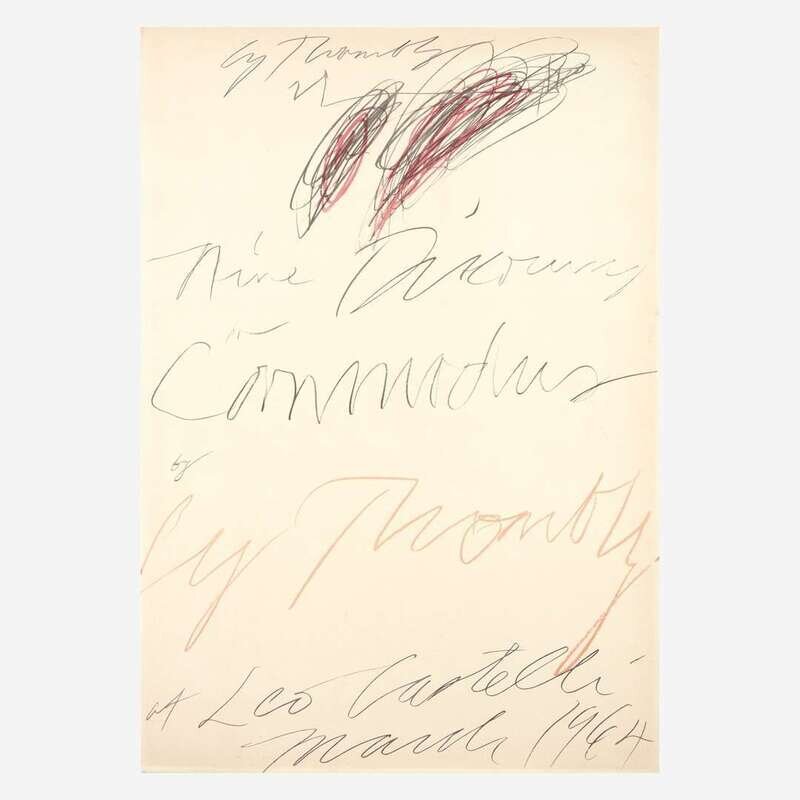 Cy Twombly
Nine Discourses
on
Commodus
by
Cy Twombly
at Leo Castelli
March 1964